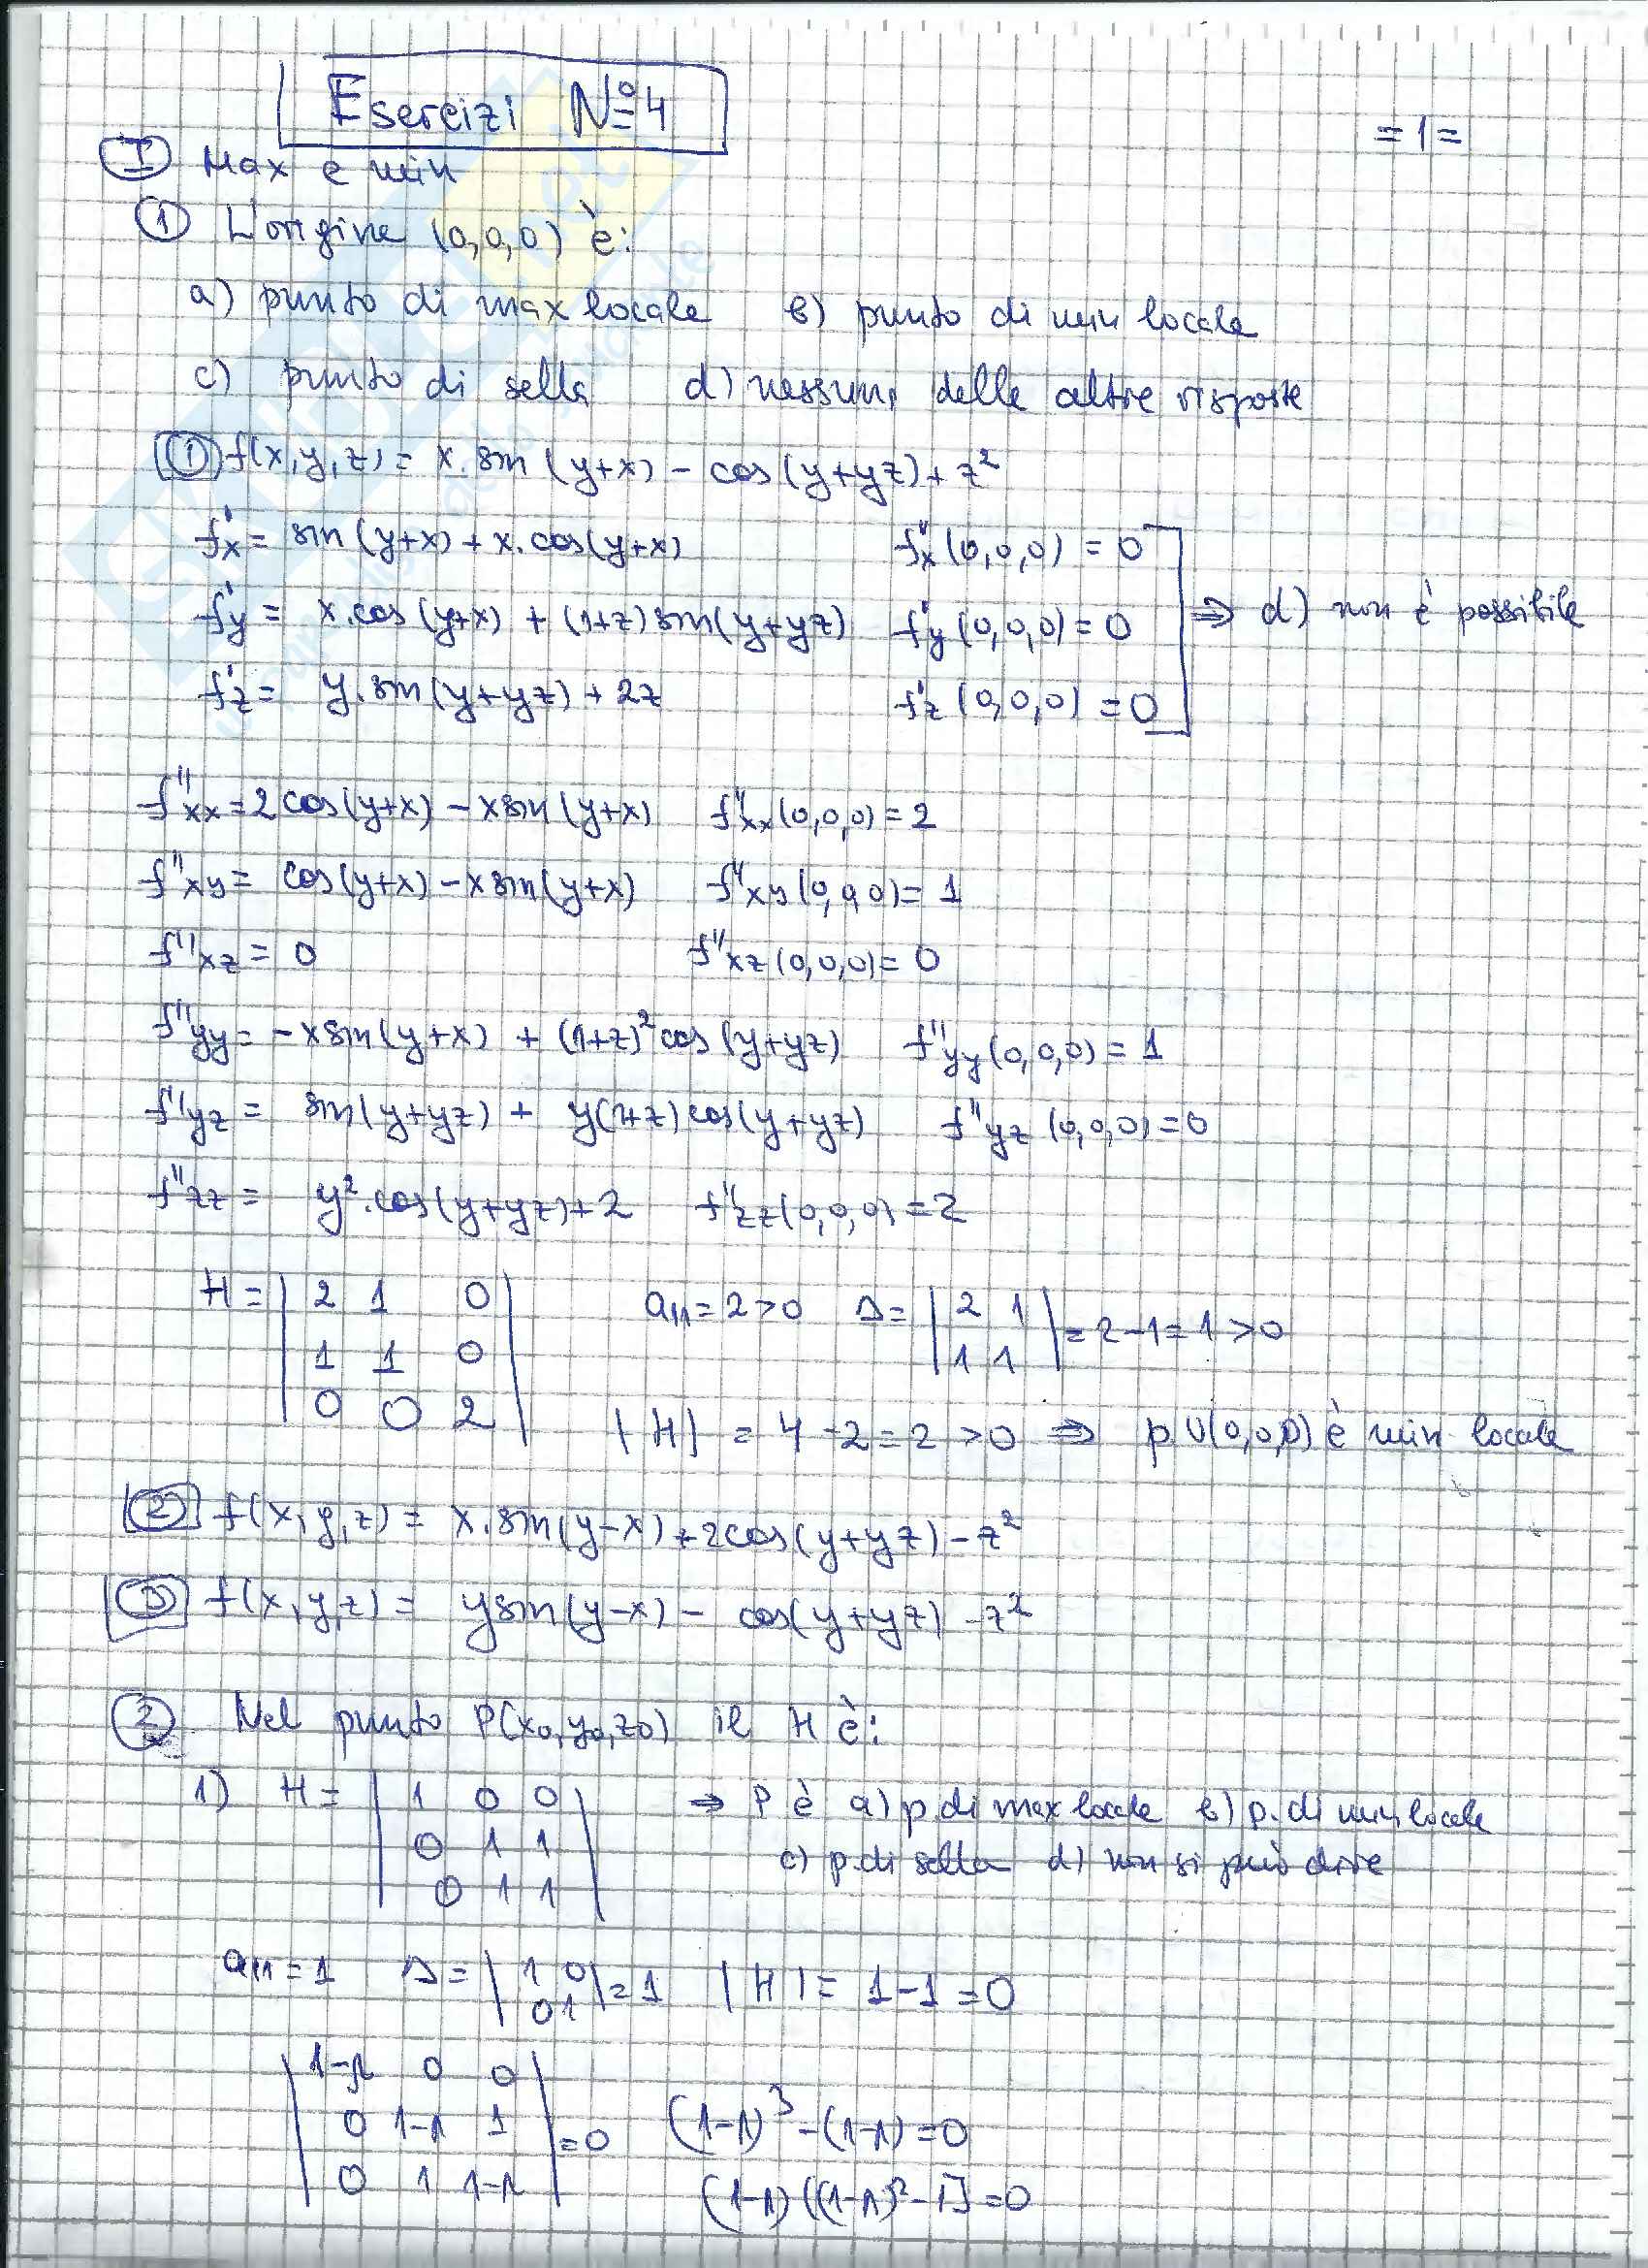 Esercizi Nº4
= 1 =
I Max e min
1 L'origine (0,0,0) è:
a) punto di max locale b) punto di min locale
c) punto di sella d) nessuna delle altre risposte
1 f(x,y,z) = x·sin(y+x) - cos(y+yz) + z²
f'x = sin(y+x) + x·cos(y+x) f'x(0,0,0) = 0
f'y = x·cos(y+x) + (1+z)sin(y+yz) f'y(0,0,0) = 0 ⇒ d) non è possibile
f'z = y·sin(y+yz) + 2z f'z(0,0,0) = 0
f''xx = 2cos(y+x) - x sin(y+x) f''xx(0,0,0) = 2
f''xy = cos(y+x) - x sin(y+x) f''xy(0,0,0) = 1
f''xz = 0 f''xz(0,0,0) = 0
f''yy = -x sin(y+x) + (1+z)²cos(y+yz) f''yy(0,0,0) = 1
f''yz = sin(y+yz) + y(1+z)cos(y+yz) f''yz(0,0,0) = 0
f''zz = y²·cos(y+yz) + 2 f''zz(0,0,0) = 2
H = | 2 1 0 | a11 = 2 > 0 Δ = | 2 1 | = 2-1 = 1 > 0
1 1 0 1 1
0 0 2 |H| = 4-2 = 2 > 0 ⇒ p O(0,0,0) è min locale
2 f(x,y,z) = x·sin(y-x) + 2cos(y+yz) - z²
3 f(x,y,z) = y sin(y-x) - cos(y+yz) - z²
2 Nel punto P(x0,y0,z0) il H è:
1) H = | 1 0 0 | ⇒ P è a) p.di max locale b) p.di min locale
0 1 1 c) p.di sella d) non si può dire
0 1 1
a11 = 1 Δ = | 1 0 | = 1 |H| = 1-1 = 0
0 1
1-λ 0 0
0 1-λ 1 = 0 (1-λ)³ - (1-λ) = 0
0 1 1-λ (1-λ)[(1-λ)²-1] = 0